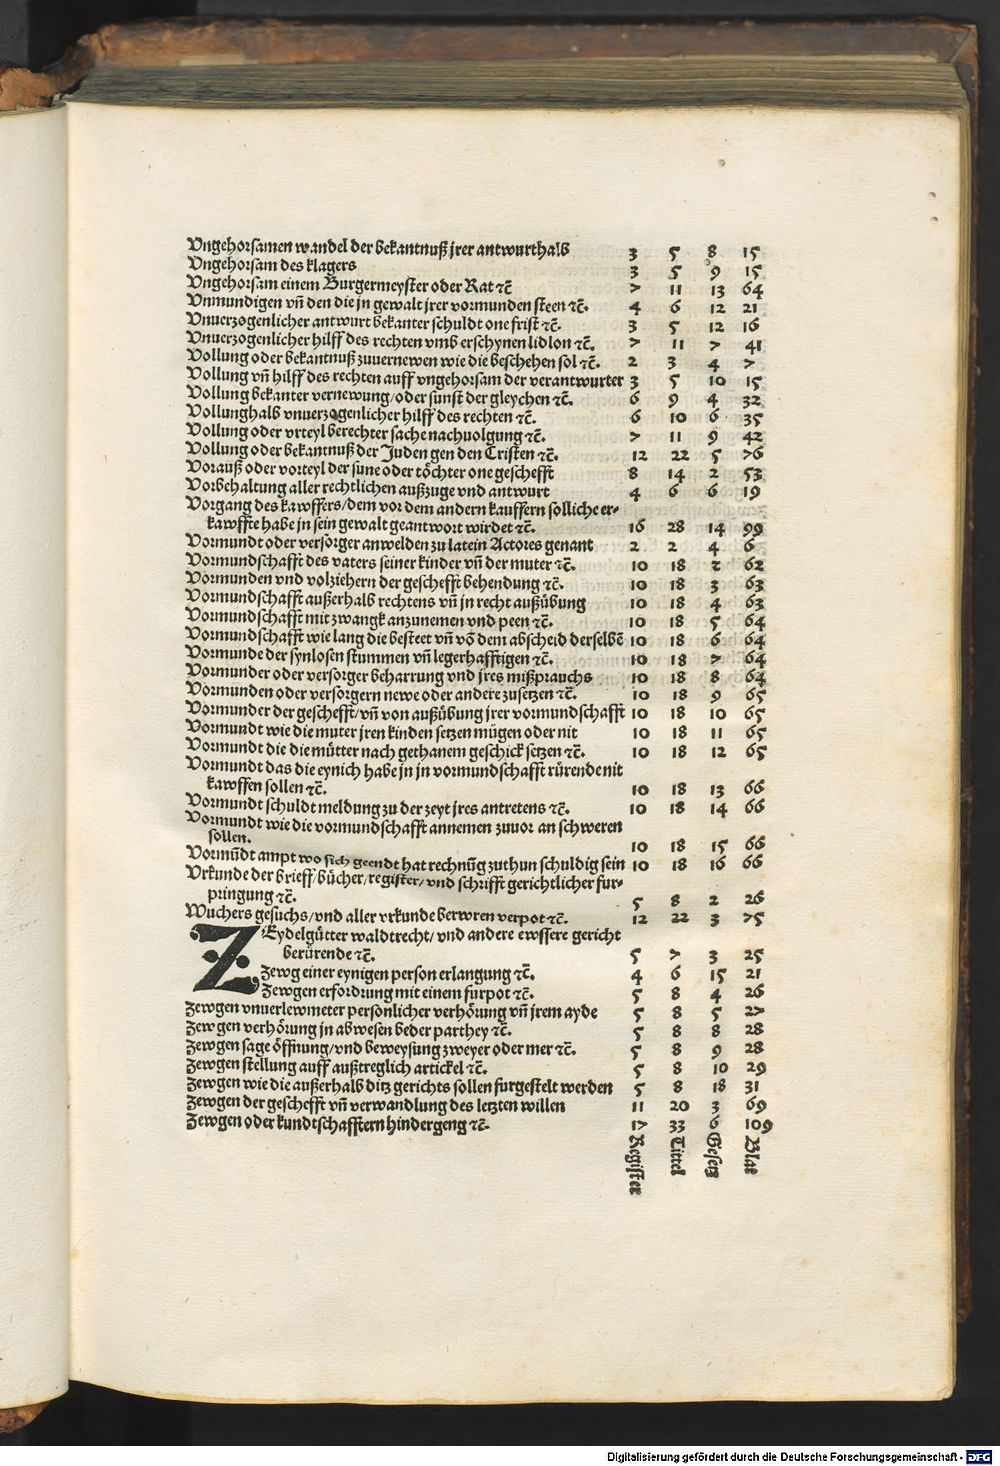 Vngehorsamen wandel der bekantnuß jrer antwurthalb 3 5 8 15
Vngehorsam des klagers 3 5 9 15
Vngehorsam einem Burgermeyster oder Rat ⁊c̄ 7 11 13 64
Vnmundigen vn̄ den die jn gewalt jrer vormunden steen ⁊c̄. 4 6 12 21
Vnuerzogenlicher antwurt bekanter schuldt one frist ⁊c̄. 3 5 12 16
Vnuerzogenlicher hilff des rechten vmb erschynen lidlon ⁊c̄. 7 11 7 41
Vollung oder bekantnuß zuuernewen wie die beschehen sol ⁊c̄. 2 3 4 7
Vollung vn̄ hilff des rechten auff vngehorsam der verantwurter 3 5 10 15
Vollung bekanter vernewung/oder sunst der gleychen ⁊c̄. 6 9 4 32
Vollunghalb vnuerzogenlicher hilff des rechten ⁊c̄. 6 10 6 35
Vollung oder vrteyl berechter sache nachuolgung ⁊c̄. 7 11 9 42
Vollung oder bekantnuß der Juden gen den Cristen ⁊c̄. 12 22 5 76
Vorauß oder vorteyl der sune oder töchter one geschefft 8 14 2 53
Vorbehaltung aller rechtlichen außzuge vnd antwurt 4 6 6 19
Vorgang des kawffers/dem vor dem andern kauffern solliche er-
kawffte habe jn sein gewalt geantwort wirdet ⁊c̄. 16 28 14 99
Vormundt oder versorger anwelden zu latein Actores genant 2 2 4 6
Vormundschafft des vaters seiner kinder vn̄ der muter ⁊c̄. 10 18 2 62
Vormunden vnd volziehern der geschefft behendung ⁊c̄. 10 18 3 63
Vormundschafft außerhalb rechtens vn̄ jn recht außübung 10 18 4 63
Vormundschafft mit zwangk anzunemen vnd peen ⁊c̄. 10 18 5 64
Vormundschafft wie lang die besteet vn̄ vō dem abscheid derselbē 10 18 6 64
Vormunde der synlosen stummen vn̄ legerhafftigen ⁊c̄. 10 18 7 64
Vormunder oder versorger beharrung vnd jres mißprauchs 10 18 8 64
Vormunden oder versorgern newe oder andere zusetzen ⁊c̄. 10 18 9 65
Vormunder der geschefft/vn̄ von außübung jrer vormundschafft 10 18 10 65
Vormundt wie die muter jren kinden setzen mügen oder nit 10 18 11 65
Vormundt die die mütter nach gethanem geschick setzen ⁊c̄. 10 18 12 65
Vormundt das die eynich habe jn jn vormundschafft rürende nit
kawffen sollen ⁊c̄. 10 18 13 66
Vormundt schuldt meldung zu der zeyt jres antretens ⁊c̄. 10 18 14 66
Vormundt wie die vormundschafft annemen zuuor an schweren
sollen. 10 18 15 66
Vormūdt ampt wo sich geendt hat rechnūg zuthun schuldig sein 10 18 16 66
Vrkunde der brieff bücher/register/vnd schrifft gerichtlicher fur-
pringung ⁊c̄. 5 8 2 26
Wuchers gesuchs/vnd aller vrkunde berwren verpot ⁊c̄. 12 22 3 75
ZEydelgütter waldtrecht/vnd andere ewssere gericht
berürende ⁊c̄. 5 7 3 25
Zewg einer eynigen person erlangung ⁊c̄. 4 6 15 21
Zewgen erfordrung mit einem furpot ⁊c̄. 5 8 4 26
Zewgen vnuerlewmeter persönlicher verhörung vn̄ jrem ayde 5 8 5 27
Zewgen verhörung jn abwesen beder parthey ⁊c̄. 5 8 8 28
Zewgen sage öffnung/vnd beweysung zweyer oder mer ⁊c̄. 5 8 9 28
Zewgen stellung auff außtreglich artickel ⁊c̄. 5 8 10 29
Zewgen wie die außerhalb ditz gerichts sollen furgestelt werden 5 8 18 31
Zewgen der geschefft vn̄ verwandlung des letzten willen 11 20 3 69
Zewgen oder kundtschafftern hindergeng ⁊c̄. 17 33 6 109
Register Tittel Gesetz Blat
Digitalisierung gefördert durch die Deutsche Forschungsgemeinschaft - DFG